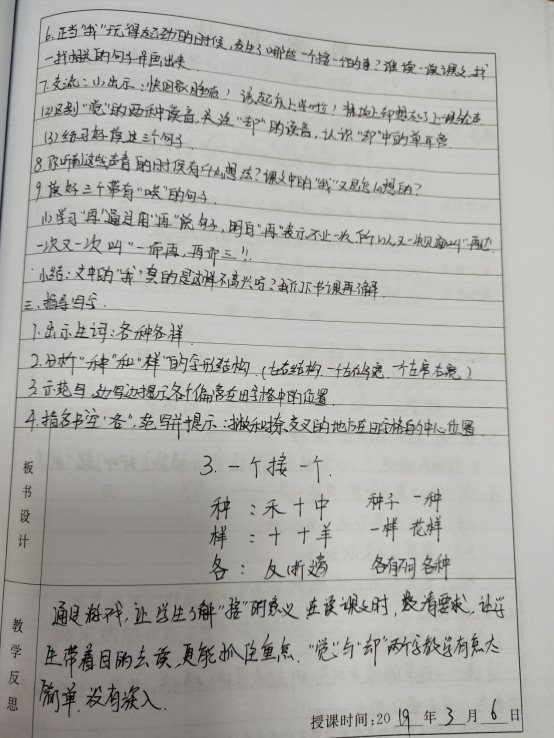 6.正当"我"玩得起劲的时候,发生了哪些一个接一个的事?谁读一读课文,找
一找相关的句子并画出来
7.交流:(1)出示:快回家睡觉!该起床上学啦!操场上却想起了上课铃声.
(2)区别"觉"的两种读音,关注"却"的读音,认识"却"中的单耳旁.
(3)练习好读这三个句子.
8.你听到这些声音的时候有什么想法?课文中的"我"又是怎么想的?
9.读好三个带有"唉"的句子.
(1)学习"再"通过用"再"说句子,明白"再"表示不止一次,所以又一次见面叫"再见"
一次又一次叫"一而再,再而三"!
小结:文中的"我"真的是这样不高兴吗?我们下节课再了解.
三.指导写字
1.出示生词:各种各样.
2.分析"种"和"样"的字形结构.(左右结构,一个左右等宽,一个左窄右宽)
3.示范写,边写边提示各个偏旁在田字格中的位置.
4.指名书空"各",范写并提示:撇和捺交叉的地方在田字格的中心位置.
板书设计
3.一个接一个.
种:禾+中 种子 一种
样:木+羊 一样 花样
各:反折捺 各有不同 各种
教学反思
通过游戏,让学生了解"接"的意义.在读课文时,提清要求,让学
生带着目的去读,更能抓住重点."觉"与"却"两个字教学有点太
简单,没有深入.
授课时间:2019年3月6日